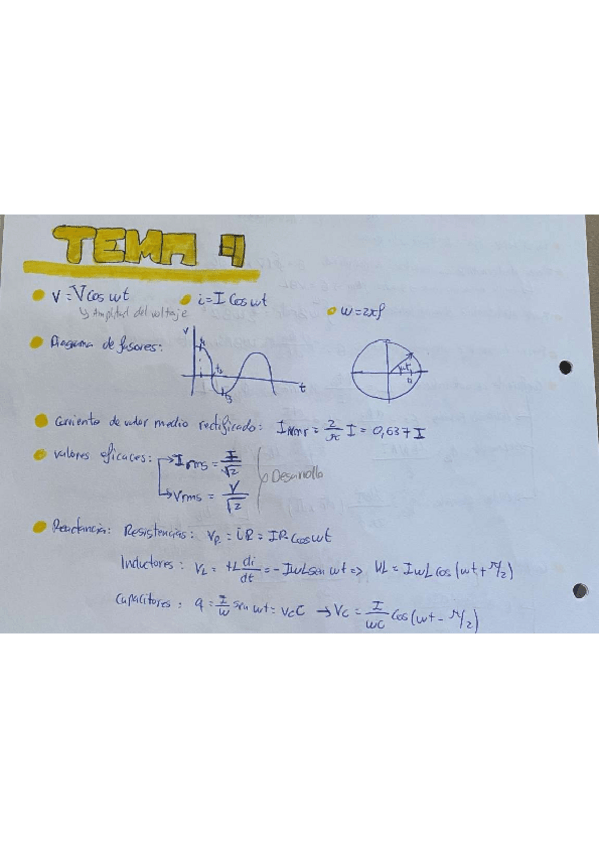 TEMA 9
V = V cos wt
i = I cos wt
w = 2πf
↳ Amplitud del voltaje
Diagrama de fasores:
V
t
Corriente de valor medio rectificado: Ivmr = 2/π I = 0,637 I
Valores eficaces: → Irms = I/√2
→ Vrms = V/√2
Desarrollo
Reactancia: Resistencias: VR = iR = IR cos wt
Inductores: VL = +L di/dt = -IwL sen wt => VL = IwL cos(wt + π/2)
Capacitores: q = I/w sen wt = Vc C → Vc = I/wC cos(wt - π/2)